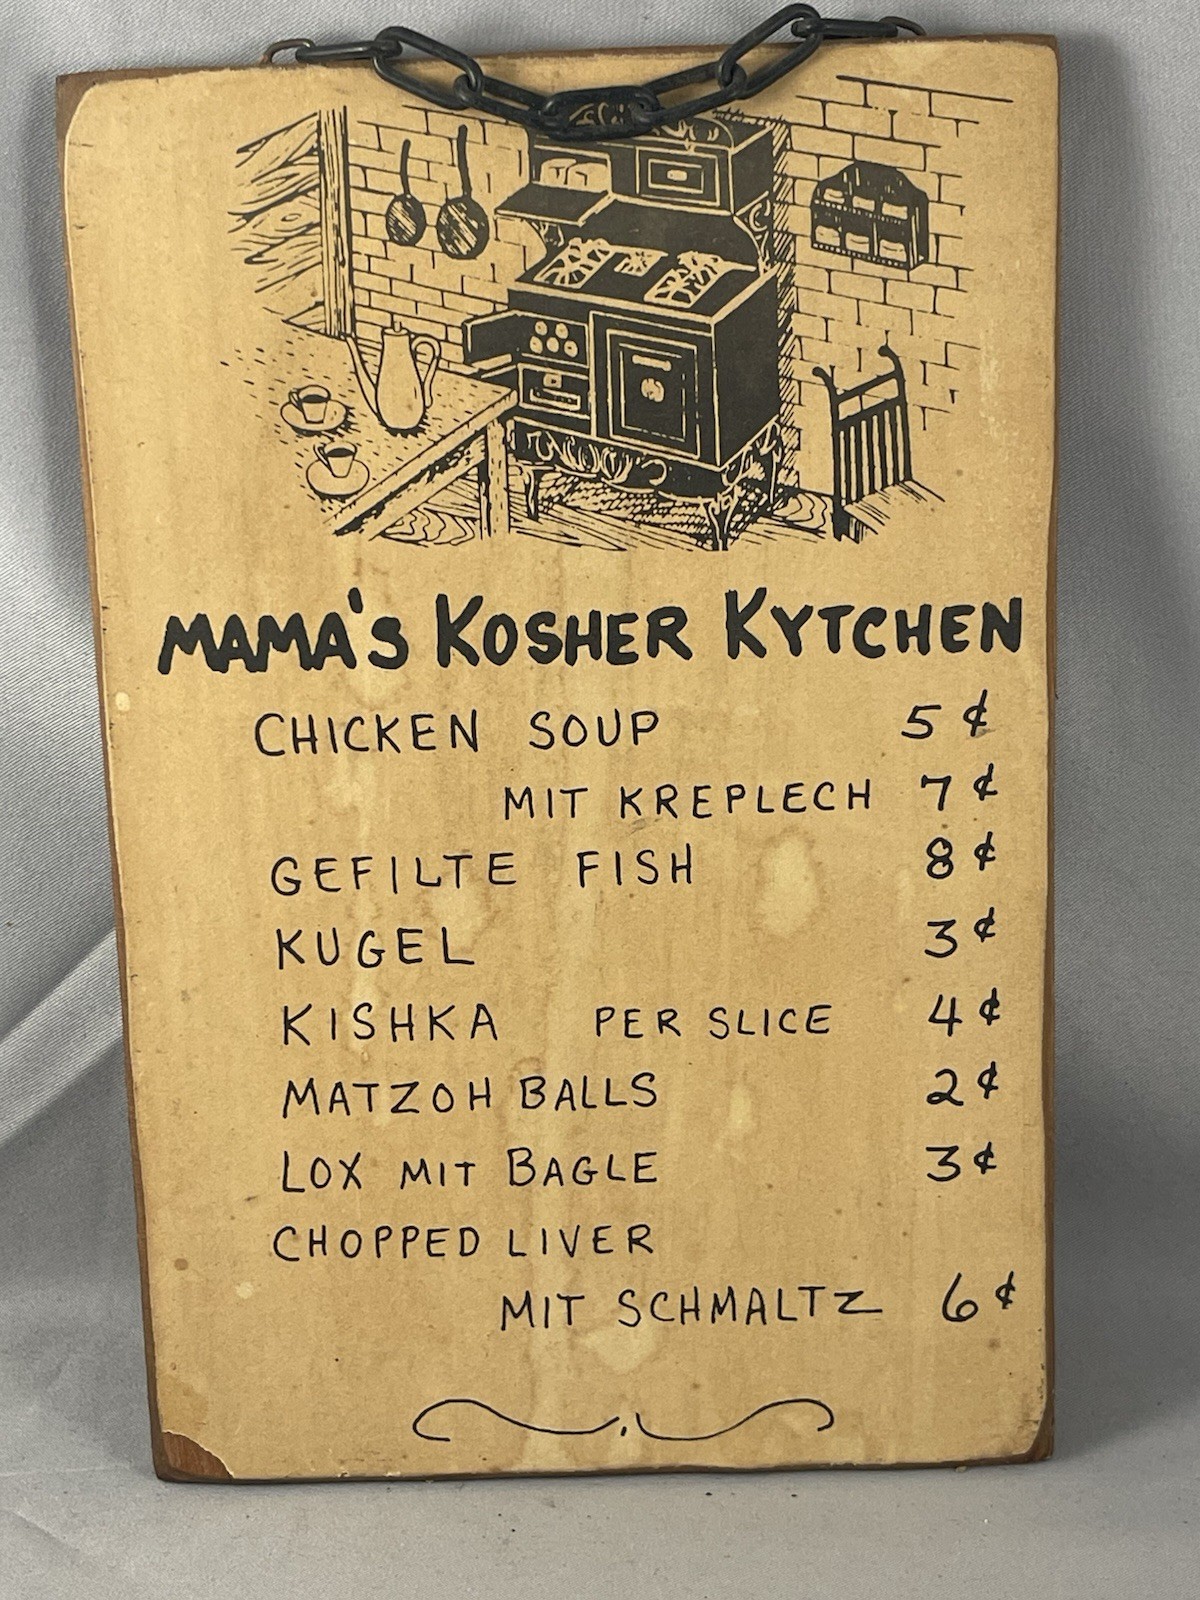 MAMA'S KOSHER KYTCHEN
CHICKEN SOUP 5¢
MIT KREPLECH 7¢
GEFILTE FISH 8¢
KUGEL 3¢
KISHKA PER SLICE 4¢
MATZOH BALLS 2¢
LOX MIT BAGLE 3¢
CHOPPED LIVER
MIT SCHMALTZ 6¢